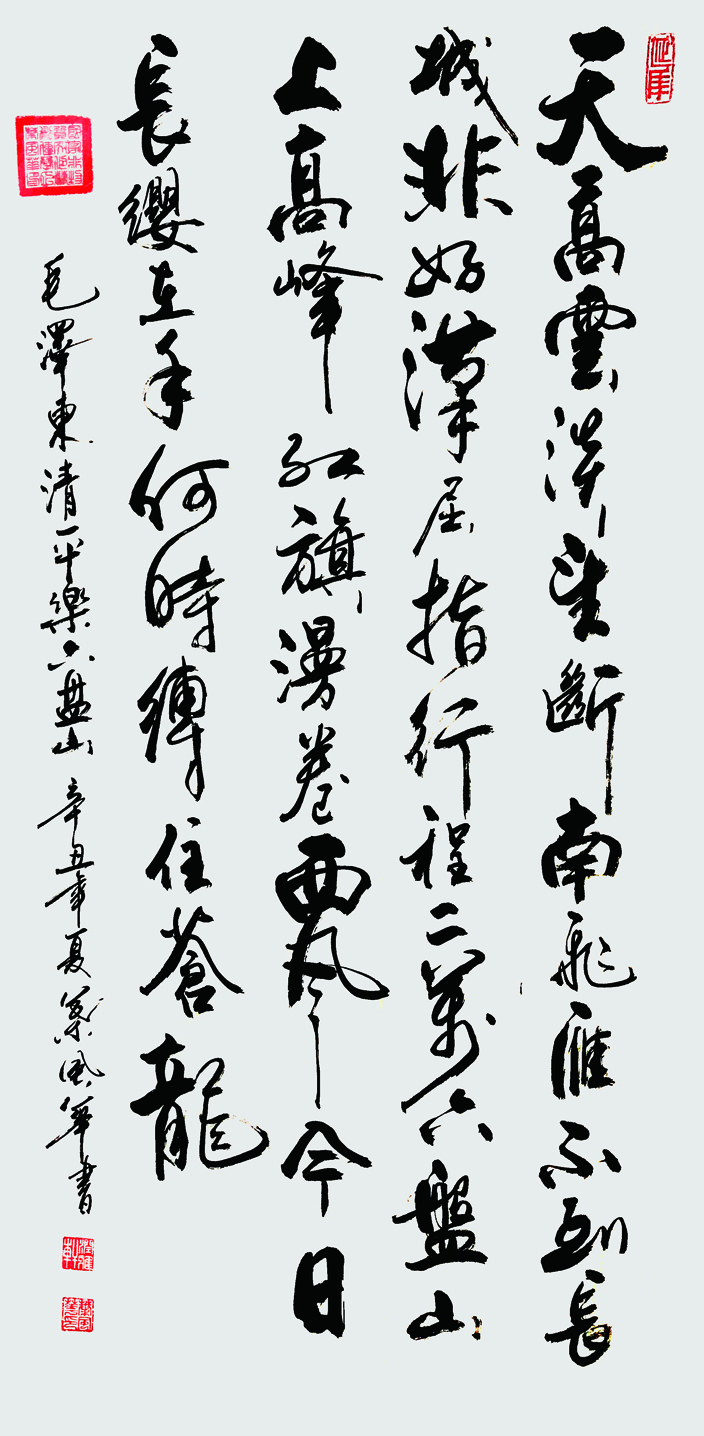 天高雲淡望斷南飛雁不到長
城非好漢屈指行程二萬六盤山
上高峰紅旗漫卷西風今日
長纓在手何時縛住蒼龍
毛澤東清平樂六盤山 辛丑年夏葉風華書